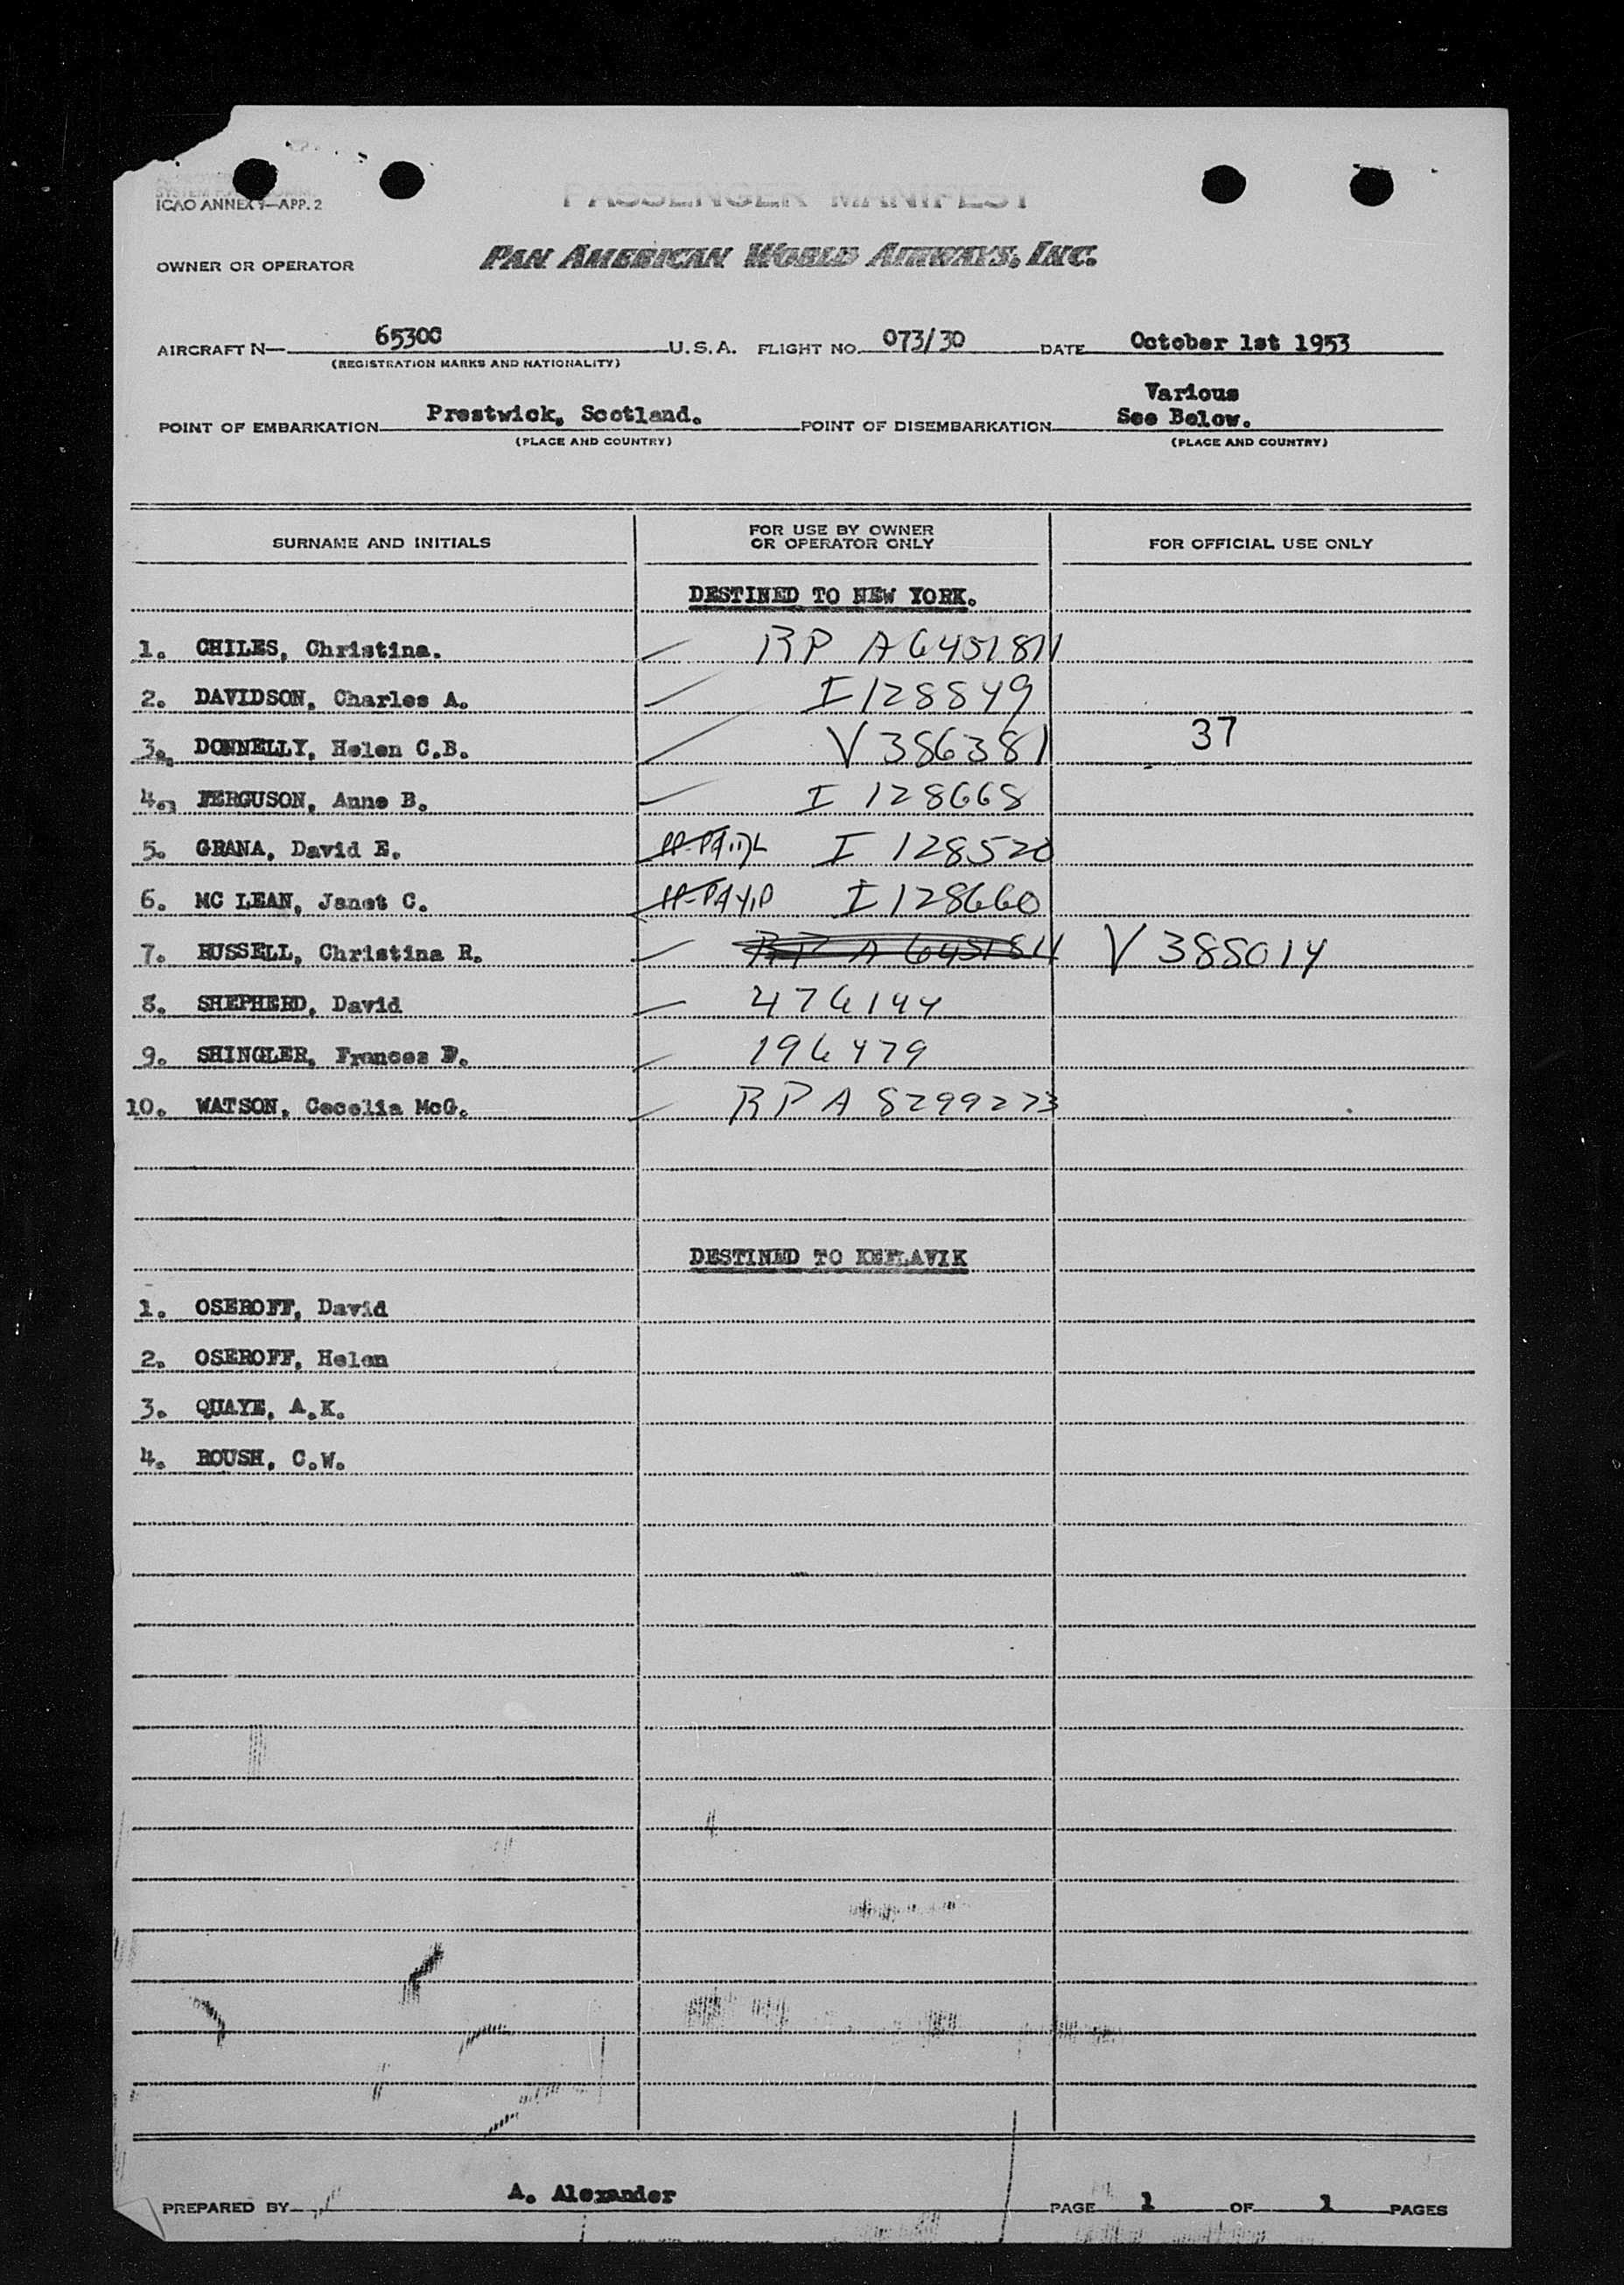 ICAO ANNEX 9—APP. 2
PASSENGER MANIFEST
OWNER OR OPERATOR PAN AMERICAN WORLD AIRWAYS, INC.
AIRCRAFT N— 6530C U.S.A. FLIGHT NO. 073/30 DATE October 1st 1953
(REGISTRATION MARKS AND NATIONALITY)
Various
POINT OF EMBARKATION Prestwick, Scotland. POINT OF DISEMBARKATION See Below.
(PLACE AND COUNTRY) (PLACE AND COUNTRY)
SURNAME AND INITIALS FOR USE BY OWNER OR OPERATOR ONLY FOR OFFICIAL USE ONLY
DESTINED TO NEW YORK.
1. CHILES, Christina. RP A6451811
2. DAVIDSON, Charles A. I 128849
3. DONNELLY, Helen C.B. V 386381 37
4. FERGUSON, Anne B. I 128668
5. GRANA, David E. I 128520
6. MC LEAN, Janet C. I 128660
7. RUSSELL, Christina R. RP A 6451811 V 385014
8. SHEPHERD, David 476144
9. SHINGLER, Frances F. 196479
10. WATSON, Cecelia McG. RP A 8299273
DESTINED TO KEFLAVIK
1. OSEROFF, David
2. OSEROFF, Helen
3. QUAYE, A.K.
4. ROUSH, C.W.
PREPARED BY A. Alexander PAGE 1 OF 1 PAGES